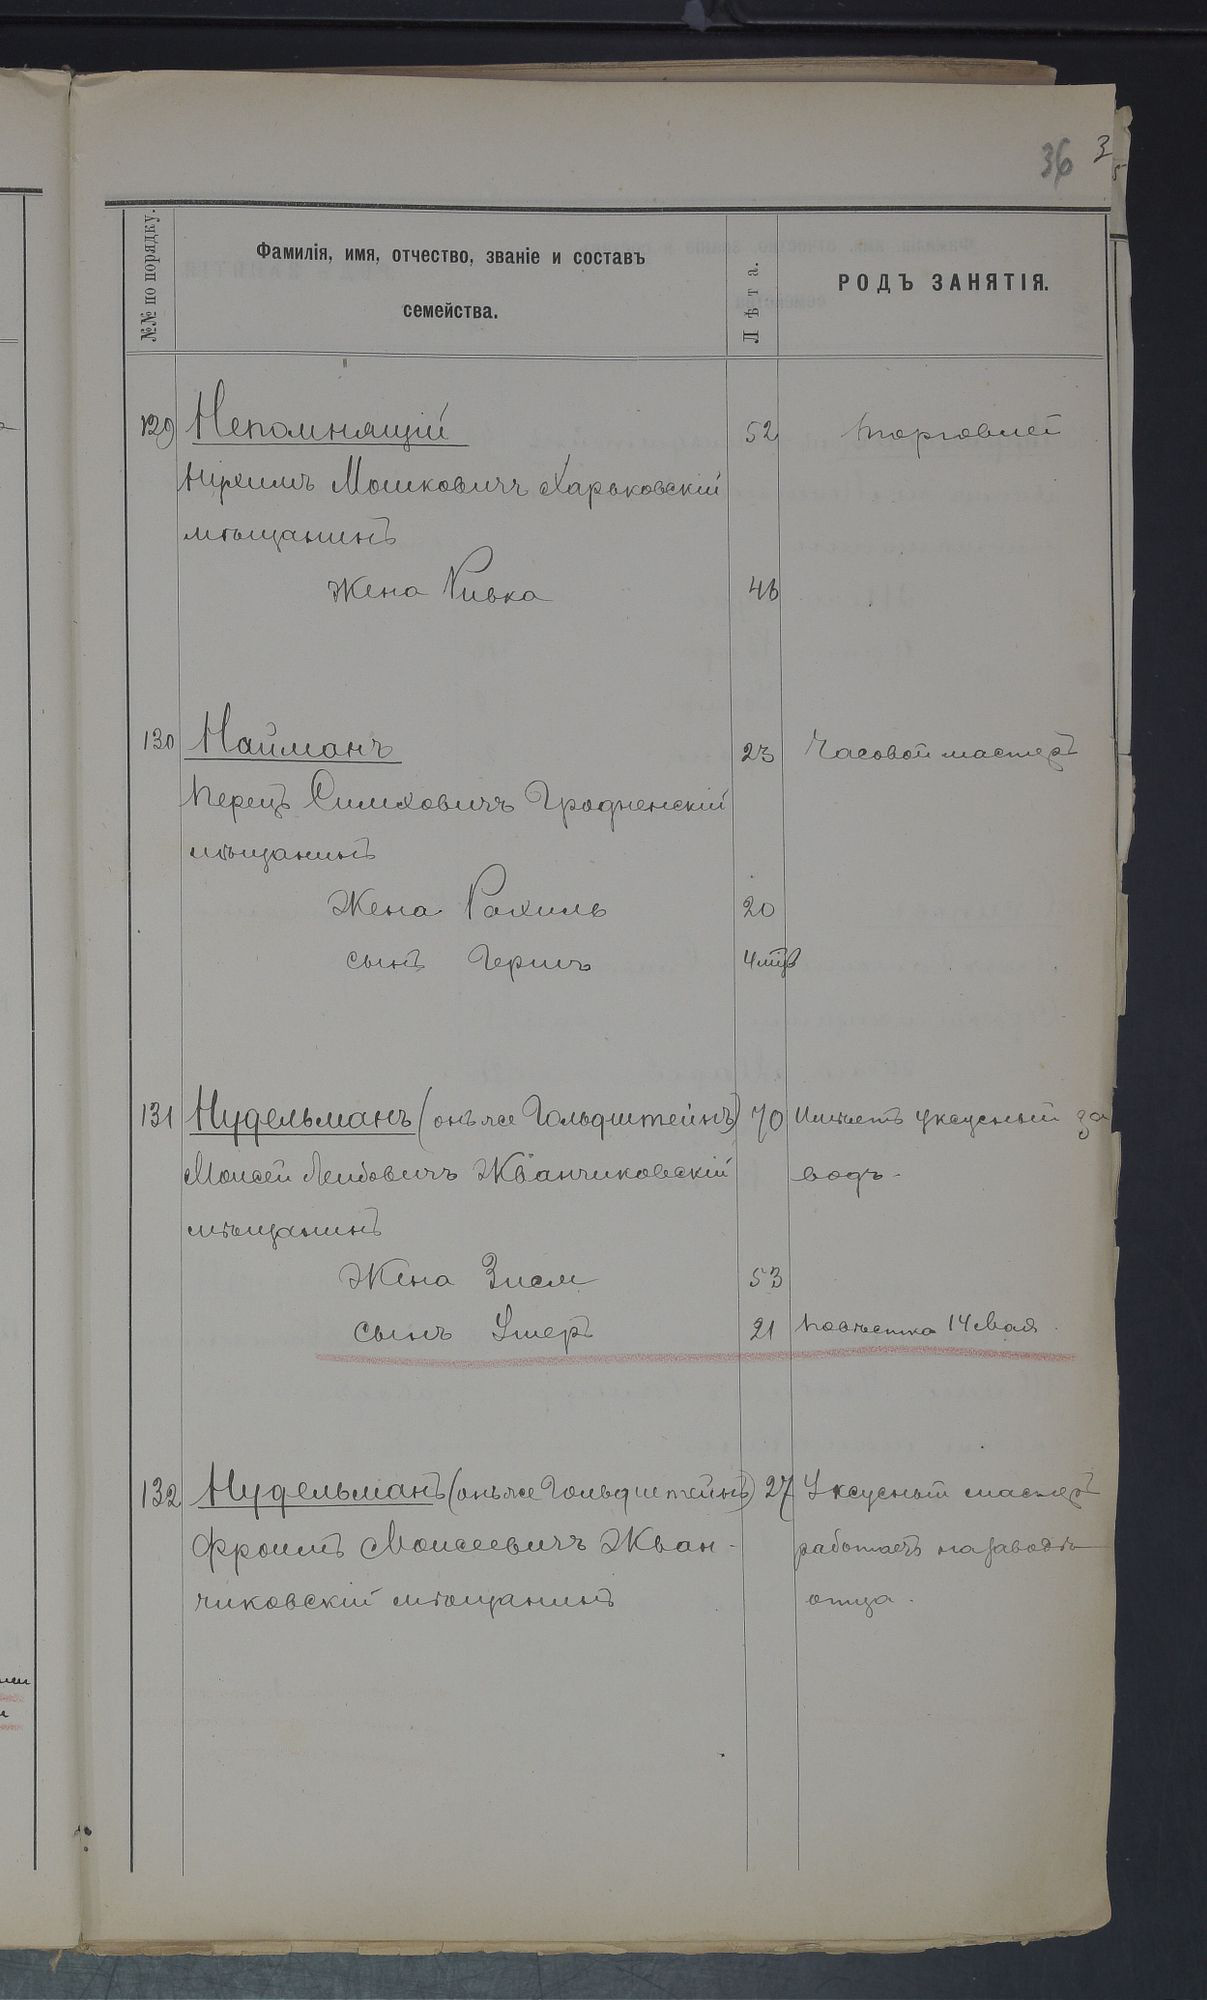 36 3
№№ по порядку.
Фамилія, имя, отчество, званіе и составъ
семейства.
Лѣта.
РОДЪ ЗАНЯТІЯ.
129 Непомнящій 52 торговлей
Мошковичъ Харьковскій
мѣщанинъ
Жена Ривка 46
130 Найманъ 23 Часовой мастеръ
Перецъ Симховичъ Гродненскій
мѣщанинъ
Жена Рахиль 20
сынъ Гершъ 4 мѣс
131 Нудельманъ (онъ же Гольдштейнъ) 70 Имѣетъ уксусный за
Моисей Лейбовичъ Жванчиковскій водъ.
мѣщанинъ
Жена Зисля 53
сынъ Ушеръ 21 повѣстка 14 Мая.
132 Нудельманъ (онъ же Гольдштейнъ) 27 Уксусный мастеръ
Фроимъ Моисеевичъ Жван- работаетъ на заводѣ
чиковскій мѣщанинъ отца.